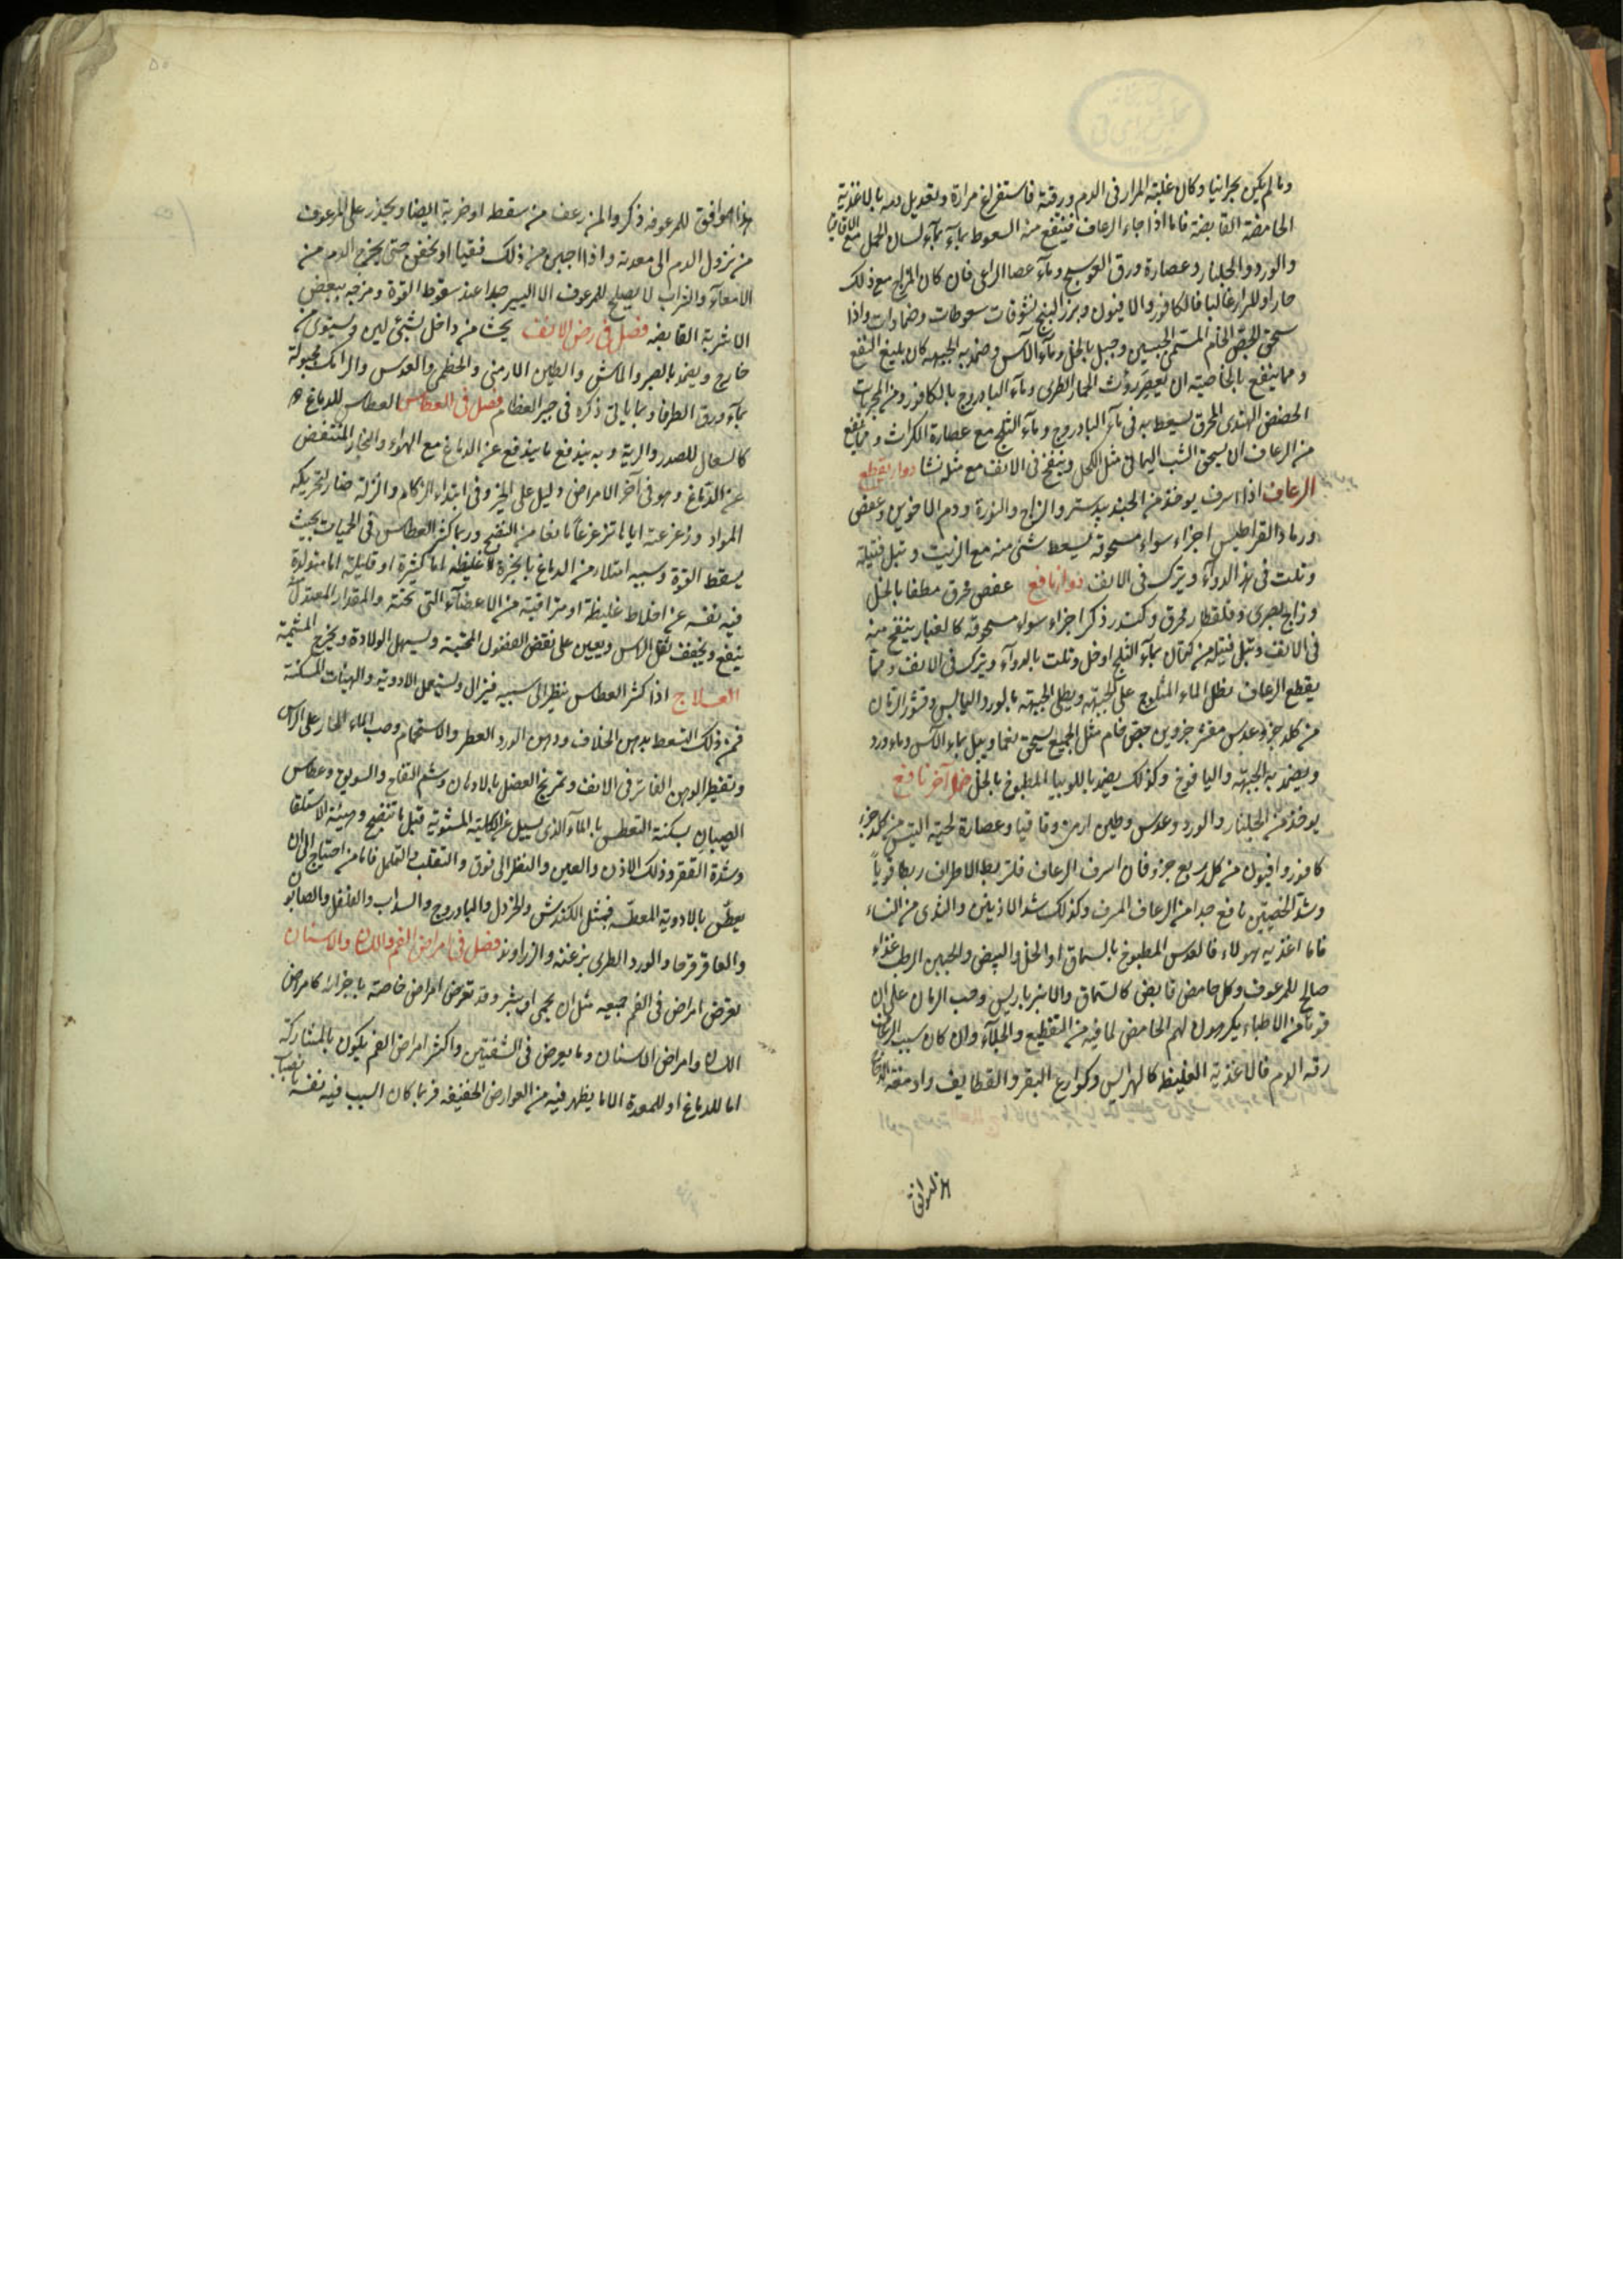 وما لم يكن بحرانيا وكان غلبته المرار فى الدم ورقته فاستفراغ مرارة وتعديل دمه بالاغذية
الحامضة القابضة فاما اذا جاء الرعاف فينتفع منه السعوط بمآء بمآء لسان الحمل مع الاقاقيا
والورد والجلنار وعصارة ورق العوسج ومآء عصا الراعى فان كان المزاج مع ذلك
حارا والمرار غالبا فالكافور والافيون وبزر البنج نشوقات سعوطات وضمادات واذا
سحق الجص الخام المسمى الجبسين وجبل بالخل ومآء الآس وضمد به الجبهه كان بليغ النفع
ومما ينفع بالخاصية ان يعصر روث الحمار الطرى ومآء البادروج بالكافور ومن المجربات
الحضض الهندى المحرق يسعط به فى مآء البادروج ومآء الثلج مع عصارة الكراث ومما ينفع
من الرعاف ان يسحق الشب اليمانى مثل الكحل وينفخ فى الانف مع مثله نشا دوا يقطع
الرعاف اذا اسرف يوخذ من الجندبيدستر والزاج والنورة ودم الاخوين وعفص
ورماد القراطيس اجزاء سواء مسحوقه يسعط شئ منه مع الزيت وتبل فتيلة
وتلت فى هذ الدوآء ويترك فى الانف دوا نافع عفص محرق مطفا بالخل
وزاج بصرى وقلقطار محرق وكندر ذكر اجزاء سواء مسحوقه كالغبار ينفخ منه
فى الانف وتبل فتيلة من كتان بمآء الثلج او خل وتلت بالدوآء ويترك فى الانف ومما
يقطع الرعاف نطل الماء المثلوج على الجبهة ويطلى الجبهة بالورد اليابس وقشر الرمان
من كلد جزء عدس مقشر جزوين جص خام مثل الجميع يسحق نعما ويبل بماء الآس وماء ورد
ويضمد به الجبهة واليافوخ وكذلك يضمد باللوبيا المطبوخ بالخل ضماد آخر نافع
يوخذ من الجلنار والورد وعدس وطين ارمنى وقاقيا وعصارة لحية التيس من كلد جزء
كافور وافيون من كل ربع جزء فان اسرف الرعاف فلتربط الاطراف ربطا قوياً
وشد الخصيتين نافع جدا من الرعاف المسرف وكذلك شد الاذينين والثدى من النساء
فاما اغذيه هولاء فالعدس المطبوخ بالسماق او الخل والبيض والجبن الرطب غذاء
صالح للمرعوف وكل حامض قابض كالسماق والانبرباريس وحب الرمان على ان
قوما من الاطباء يكرهون لهم الحامض لما فيه من التقطيع والجلآء وان كان سبب الرعاف
رقه الدم فالاغذية الغليظه كالهرايس وكوارع البقر والقطايف وادمغه الدجاج
هذا الموافق
هذا الموافق للمرعوفه ذكر والمن رعف من سقطه او ضربة ايضا ويحذر على المرعوف
من نزول الدم الى معدته واذا احس من ذلك فتقيا او تحقن حتى يخرج الدم من
الامعآء والشراب لا يصلح للمرعوف الا اليسير جدا عند سقوط القوة ومزجه ببعض
الاشربة القابضه فصل فى رض الانف يحشا من داخل بشئ لين ويستوى من
خارج ويضمد بالصبر والماش والطين الارمنى والخطمى والعدس والرامك مجبولة
بمآء ورق الطرفا وبما ياتى ذكره فى جبر العظام فصل فى العطاس العطاس للدماغ هو
كالسعال للصدر والرية وبه يندفع ما يندفع عن الدماغ مع الهواء والبخار المنتفض
عن الدماغ وهو فى آخر الامراض دليل على الخير وفى ابتداء الزكام والنزلة ضار لتحريكه
المواد وزعزعته اياها تزعزعاً مانعا من النضج وربما كثر العطاس فى الحميات بحيث
يسقط القوة وسببه امتلاء من الدماغ بابخرة غليظه اما كثيرة او قليلة اما متولدة
فيه نفسه عن اخلاط غليظة او متراقية من الاعضآء التى تحته والمقدار المعتدل منه
ينفع ويخفف ثقل الراس ويعين على نفض الفضول المحتبسة ويسهل الولادة ويخرج المشيمة
العلاج اذا كثر العطاس ينظر الى سببه فيزال ويستعمل الادوية والهيئات المسكنة
فمن ذلك التسعط بدهن الخلاف ودهن الورد العطر والاستحمام وصب الماء الحار على الراس
وتقطير الدهن الفاتر فى الانف وتمريخ العضل بالادهان وشم التفاح والسويق وعطاس
الصبيان يسكنة التعطس بالمآء الذى يسيل عن الكلية المشوية قبل ما تنضج وهيئة الاستلقا
وشدة القفر وذلك الاذن والعين والنظر الى فوق والتقلب والتململ فاما من احتاج الى ان
يعطّس بالادوية المعطسه فبمثل الكندش والخردل والبادروج والسذاب والفلفل والصابون
والعاقرقرحا والورد الطرى بزغبه والزراوند فصل فى امراض الفم واللثة والاسنان
يعرض امراض فى الفم جميعه مثل ان يحمى او يبثر وقد تعرض امراض خاصة باجزائه كامراض
اللثة وامراض الاسنان وما يعرض فى الشفتين واكثر امراض الفم يكون بالمشاركة
اما للدماغ او للمعدة الا ما يظهر فيه من العوارض الخفيفه فربما كان السبب فيه نفسه